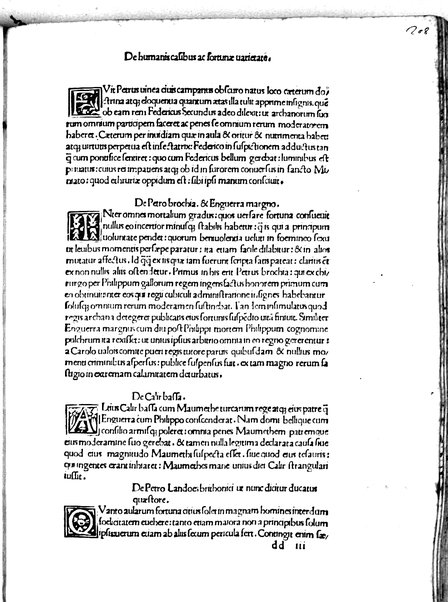 208
De humanis casibus ac fortunæ uarietate.
FVit Petrus uinea ciuis campanus obscuro natus loco cæterum do
ctrina atq; eloquentia quantum ætas illa tulit apprime insignis. quē
ob eam rem Federicus Secundus adeo dilexit: ut archanorum suo
rum omnium participem faceret ac penes se omnium rerum moderationem
haberet. Cæterum per inuidiam quæ in aula & oritur & nutrimenta habet
atq; uirtuti perpetua est infestatrix: Federico in suspictionem adductus tan
q̄ cum pontifice sentiret: quo cum Federicus bellum gerebat: luminibus est
priuatus: cuius rei impatiens atq; ob id in furorem conuersus in sancto Mi
niato: quod ethruriæ oppidum est: sibi ipsi manum consciuit.
De Petro brochia. & Enguerra margno.
INter omnis mortalium gradus: quos uersare fortuna consueuit
nullus eo incertior minusq; stabilis habetur: q̄ is qui a principum
uoluntate pendet: quorum beniuolentia ueluti in foemineo sexu
ut leuibus momentis persæpe paratur: ita etiam facile dilabitur: & in alios
mutatur affectus. Id q̄q̄ ex iis quæ iam fuerunt scripta satis pateat: clarius tn̄
ex non nullis aliis ostendetur. Primus in his erit Petrus brochia: qui ex chi
rurgo per Philippum gallorum regem ingens factus honorem primum cum
eo obtinuit: inter eos qui regii cubiculi administratione insignes habebantur
solusq; omnium rerum moderamen sustinebat. Tandem insimulatus quod
regis archana detegeret publicatis eius fortunis suspēdio uitā finiuit. Similiter
Enguerra margnus cum diu post Philippi mortem Philippum cognomine
pulchrum ita rexisset: ut unius ipsius arbitrio omnia in eo regno gererentur:
a Carolo ualois comite pueri regis tutore parux quibusdam & nullius mo
menti criminibus aspersus: publice suspensus fuit. ex tam magno rerum fa
stigio in extremam calamitatem deturbatus.
De Calir bassa.
ALtius Calir bassa cum Maumethe turcarum rege atq; eius patre q̄
Enguerra cum Philippo conscenderat. Nam domi bellique cum
consilio armisq; polleret: omnia penes Maumethem patremque
eius moderamine suo gerebat: & tamen nulla legitima declarata causa siue
quod eius magnitudo Maumethi suspecta esset. siue quod eius tesauris:
qui ingentes erant inhiaret: Maumethes mane unius diei Calir strangulari
iussit.
De Petro Landoes brithonici ut nunc dicitur ducatus
quæstore.
QVanto aularum fortuna citius solet in magnam homines interdum
foelicitatem euehere: tanto etiam maiora non a principibus solum
ipsis uerum etiam ab aliis sæpum pericula sert. Contingit enim sæ/
dd iii